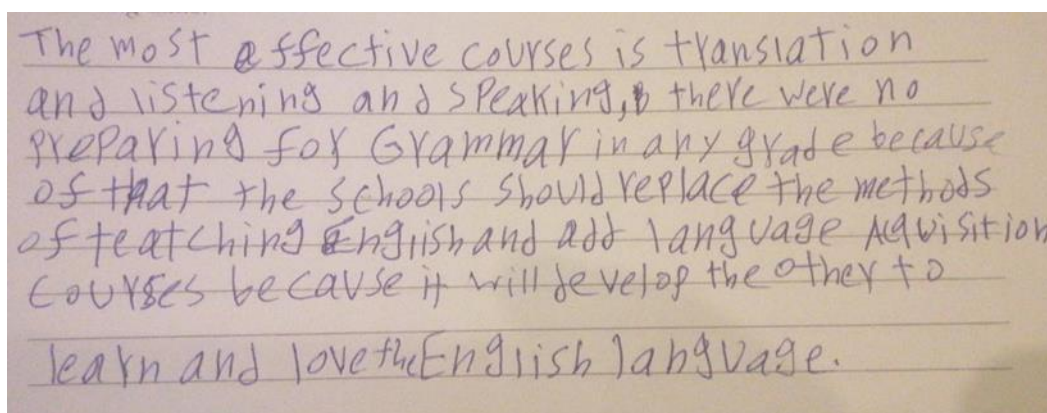 The most effective courses is translation
and listening and speaking, there were no
preparing for Grammar in any grade because
of that the schools should replace the methods
of teatching English and add language Acquisition
courses because it will develop the other to
learn and love the English language.